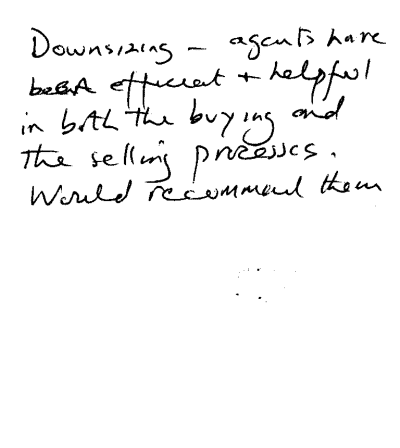 Downsizing – agents have
been efficient + helpful
in both the buying and
the selling processes.
Would recommend them